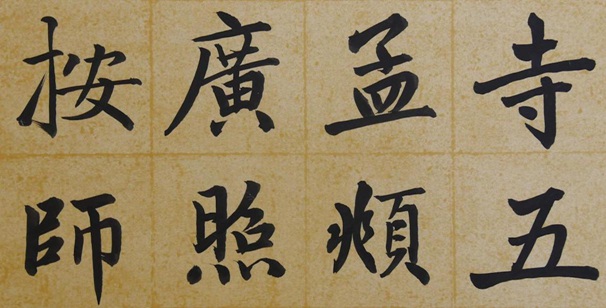 寺五
孟頫
廣照
按師